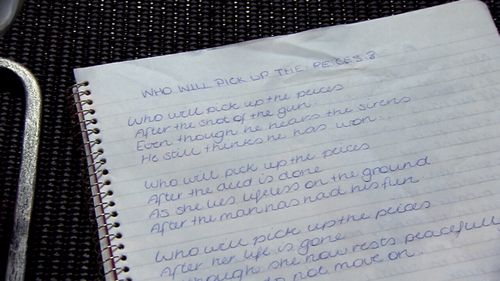 WHO WILL PICK UP THE PEICES?
Who will pick up the peices
After the shot of the gun.
Even though he hears the sirens
He still thinks he has won...
Who will pick up the peices
After the deed is done
As she lies lifeless on the ground
After the man has had his fun
Who will pick up the peices
After her life is gone
though she now rests peacefull
to not move on.